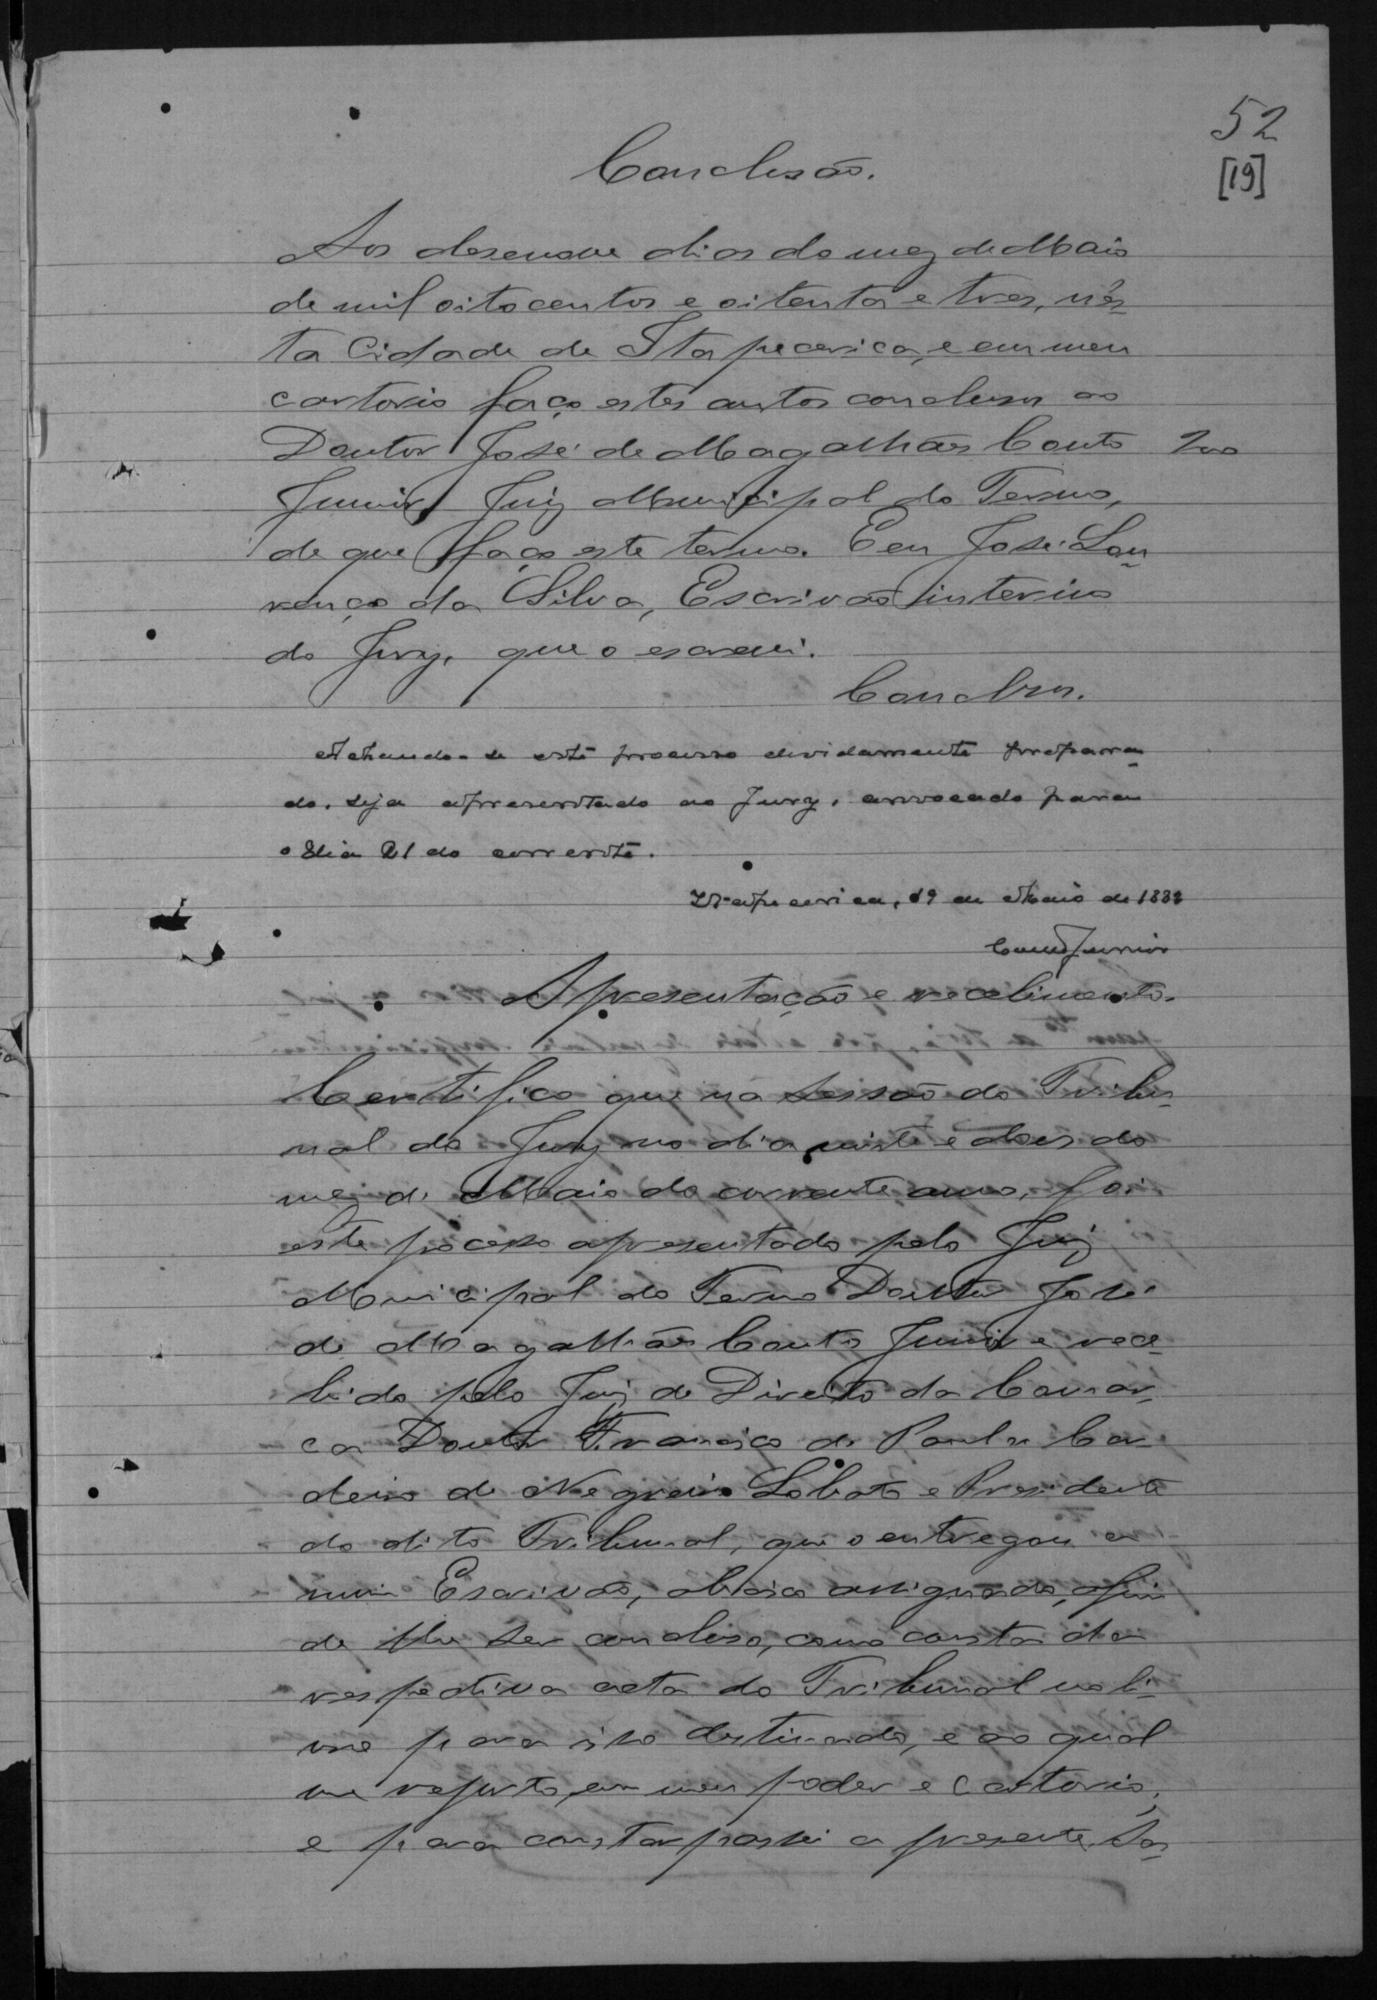 52
[19]
Conclusão.
Aos desenove dias do mez de Maio
de mil oitocentos e oitenta e tres, n'es-
ta Cidade de Itapecerica, e em meu
cartorio faço estes autos conclusos ao
Doutor José de Magalhães Couto
Junior, Juiz Municipal do Termo,
de que faço este termo. E eu José Lou-
renço da Silva, Escrivão interino
do Jury, que o escrevi.
Conclsos.
Achando-se este processo devidamente prepara-
do, seja apresentado ao Jury, convocado para
o dia 21 do corrente.
Itapecerica, 19 de Maio de 1883
Couto Junior
Apresentação e recebimento.
Certifico que na sessão do Tribu-
nal do Jury no dia vinte e dois do
mez de Maio do corrente anno, foi
este processo apresentado pelo Juiz
Municipal do Termo Doutor José
de Magalhães Couto Junior e rece-
bido pelo Juiz de Direito da Comar-
ca Doutor Francisco de Paula Cor-
deiro de Negreiros Lobato e Presidente
do dito Tribunal, que o entregou a
mim Escrivão, abaixo assignado, afim
de lhe ser concluso, como consta da
respectiva acta do Tribunal no li-
vro para isso destinado, e ao qual
me reporto, em meu poder e cartorio,
e para constar passei a presente. Sa-